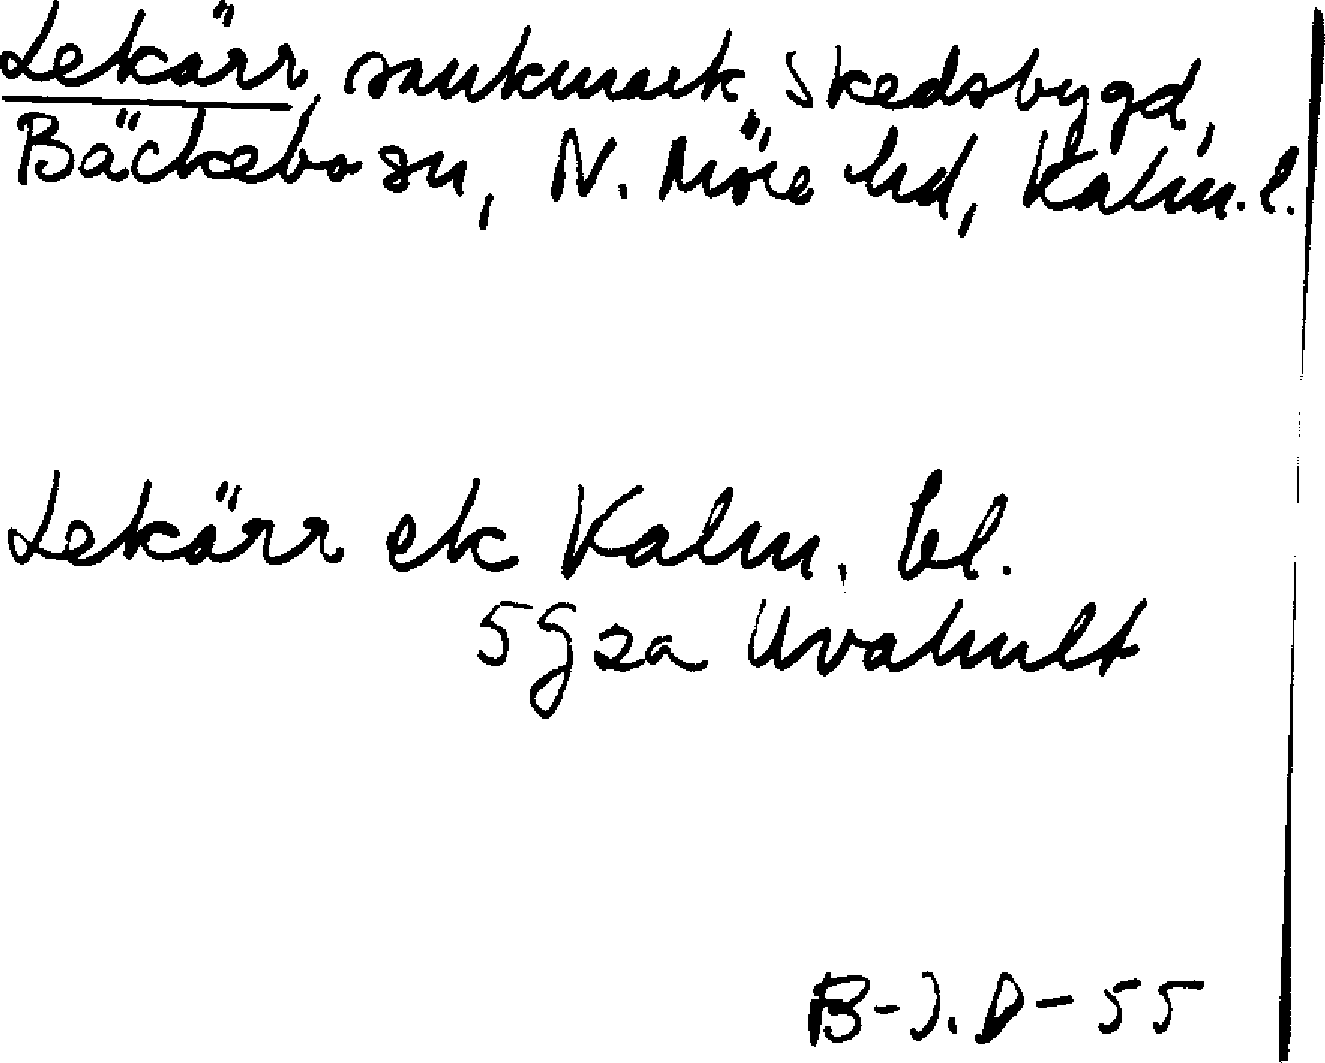 Lekärr, sankmark, Skedsbygd,
Bäckebo sn, N. Möre hd, Kalm. l.
Lekärr ek Kalm. bl.
5G2a Uvahult
B-J. D-55